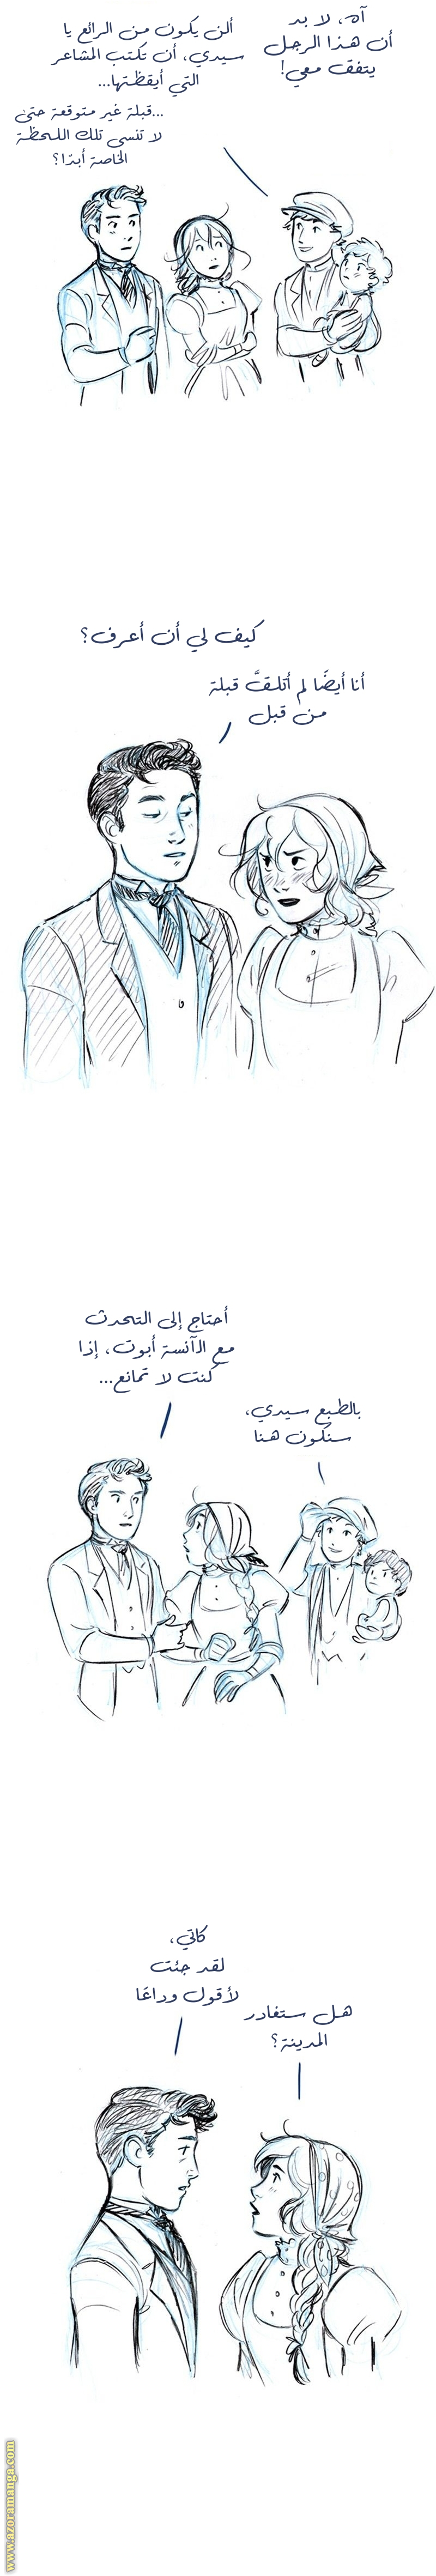 آه، لا بد
أن هذا الرجل
يتفق معي!
ألن يكون من الرائع يا
سيدي، أن تكتب المشاعر
التي أيقظتها...
...قبلة غير متوقعة حتى
لا تنسى تلك اللحظة
الخاصة أبدًا؟
كيف لي أن أعرف؟
أنا أيضًا لم أتلقَّ قبلة
من قبل
أحتاج إلى التحدث
مع الآنسة أبوت، إذا
كنت لا تمانع...
بالطبع سيدي،
سنكون هنا
كاتي،
لقد جئت
لأقول وداعًا
هل ستغادر
المدينة؟
www.azoramanga.com